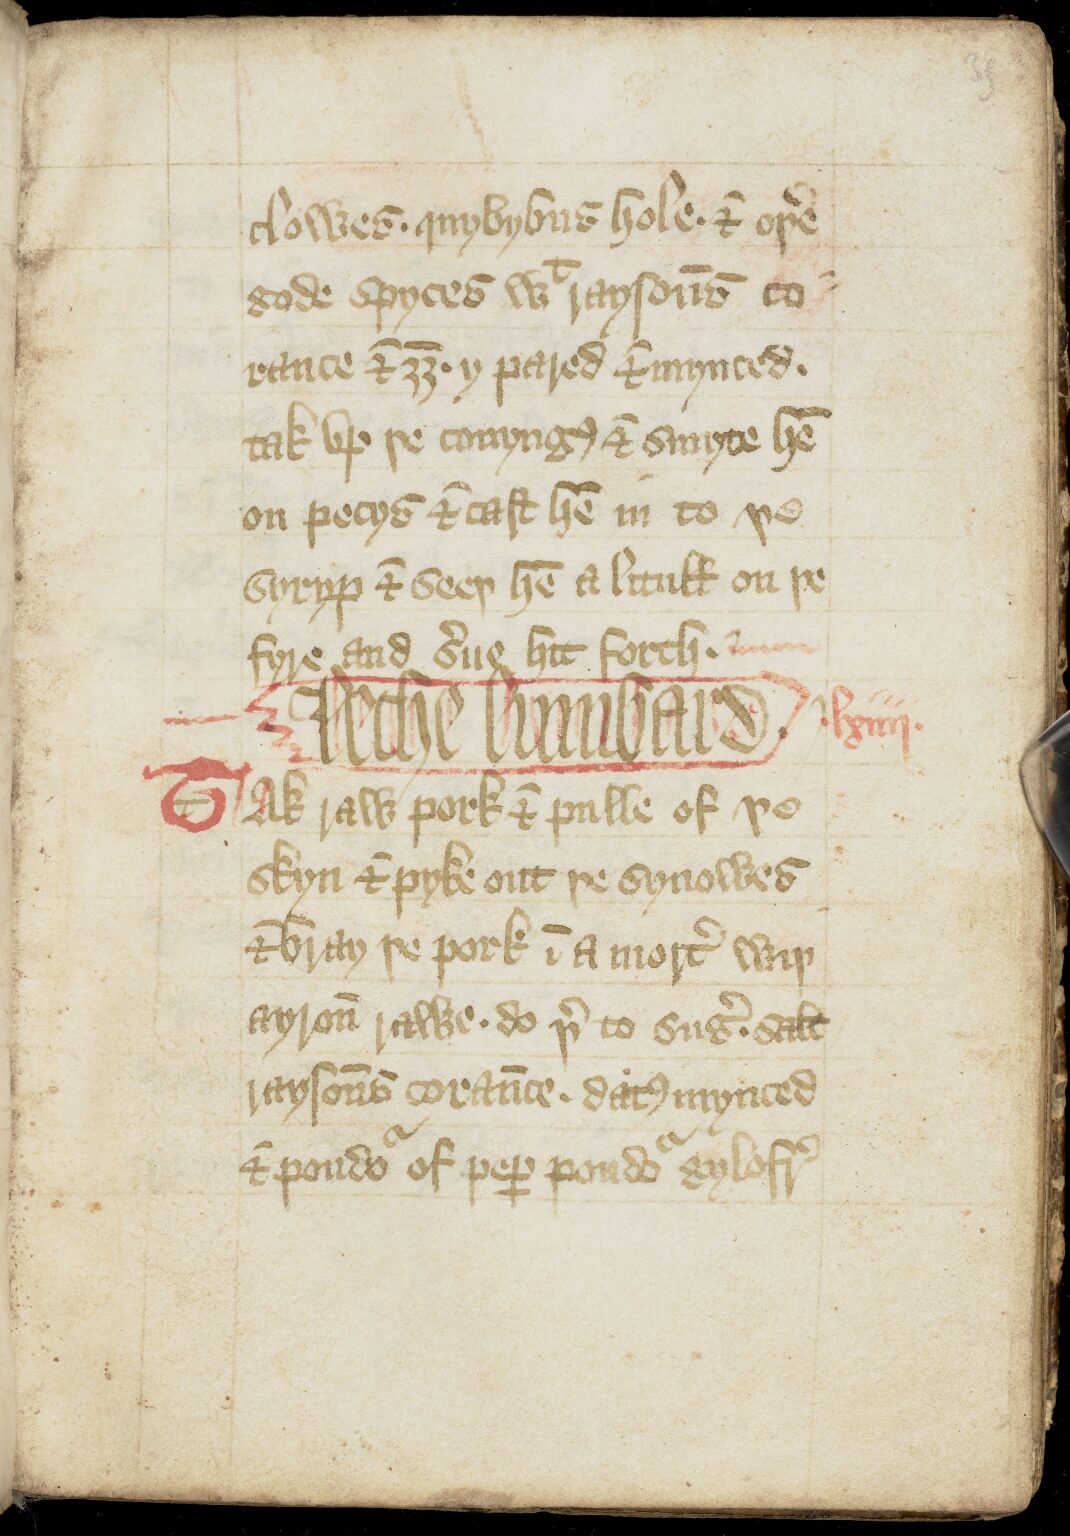 39
clowes · quybybus hole · & oþ͛e
gode spyces wᵗ raysoūs̄ co
rance & ȝȝ̄ · y pared & mynced .
tak vp þe conyngꝭ & smyte hē
on pecys & cast hē in to þe
syryp & seeþ hē a lituƚƚ on þe
fyre and s͛ue hit forth .
leche lumbard . · lxiiii ·
Tak raw pork & pulle of þe
skyn & pyke out þe synowes
& bray þe pork ī a mort͛ wiþ
ayron̄ rawe · do þ͛ to sug͛ · salt
raysōns corān̄ce · datꝭ mynced
& poudoᵃ of peꝑ poudoᵃ gylofr͛